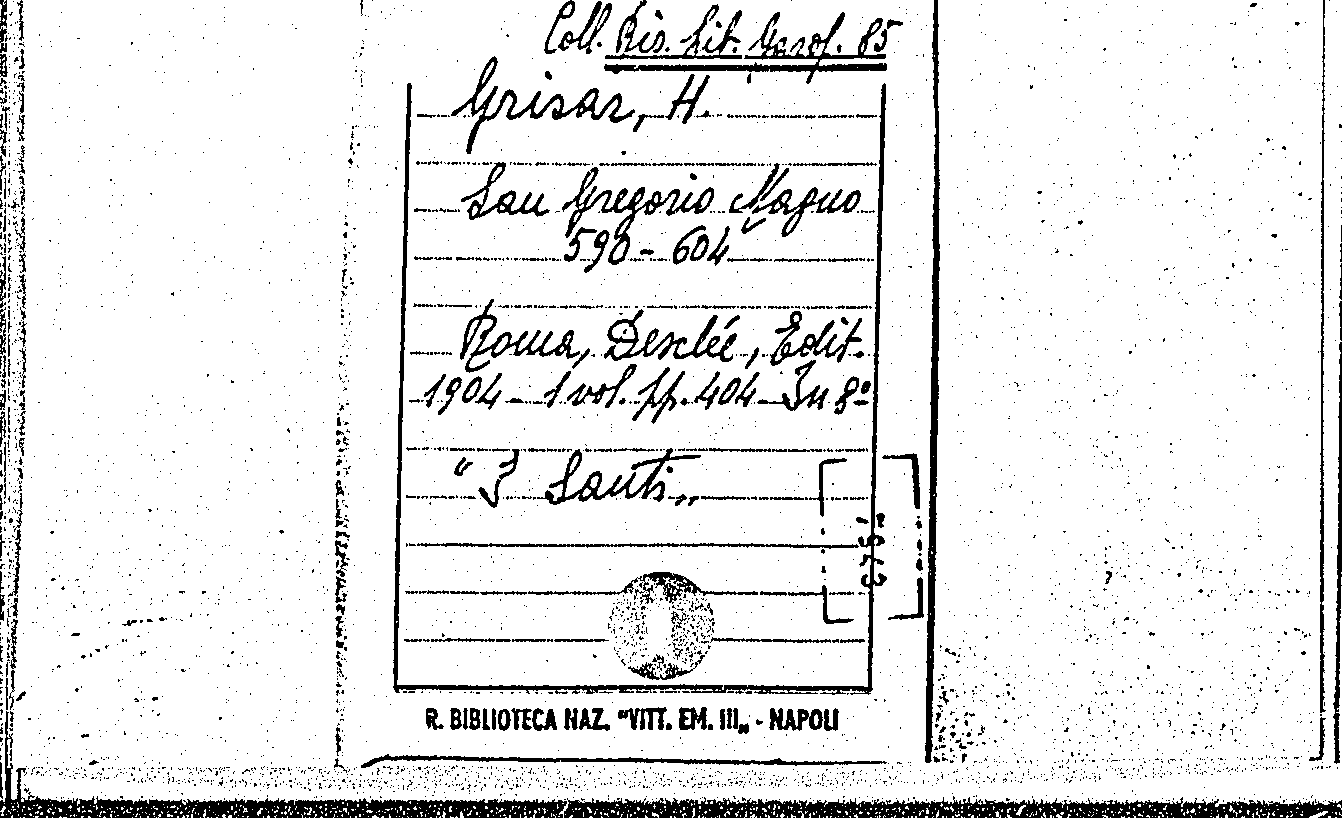 Coll. Bis. Lit. Garof. 85
Grisar, H.
San Gregorio Magno
590 - 604
Roma, Desclée, Edit.
1904 - 1 vol. pp. 404 - In 8º
" I Santi „
R. BIBLIOTECA NAZ. "VITT. EM. III„ - NAPOLI